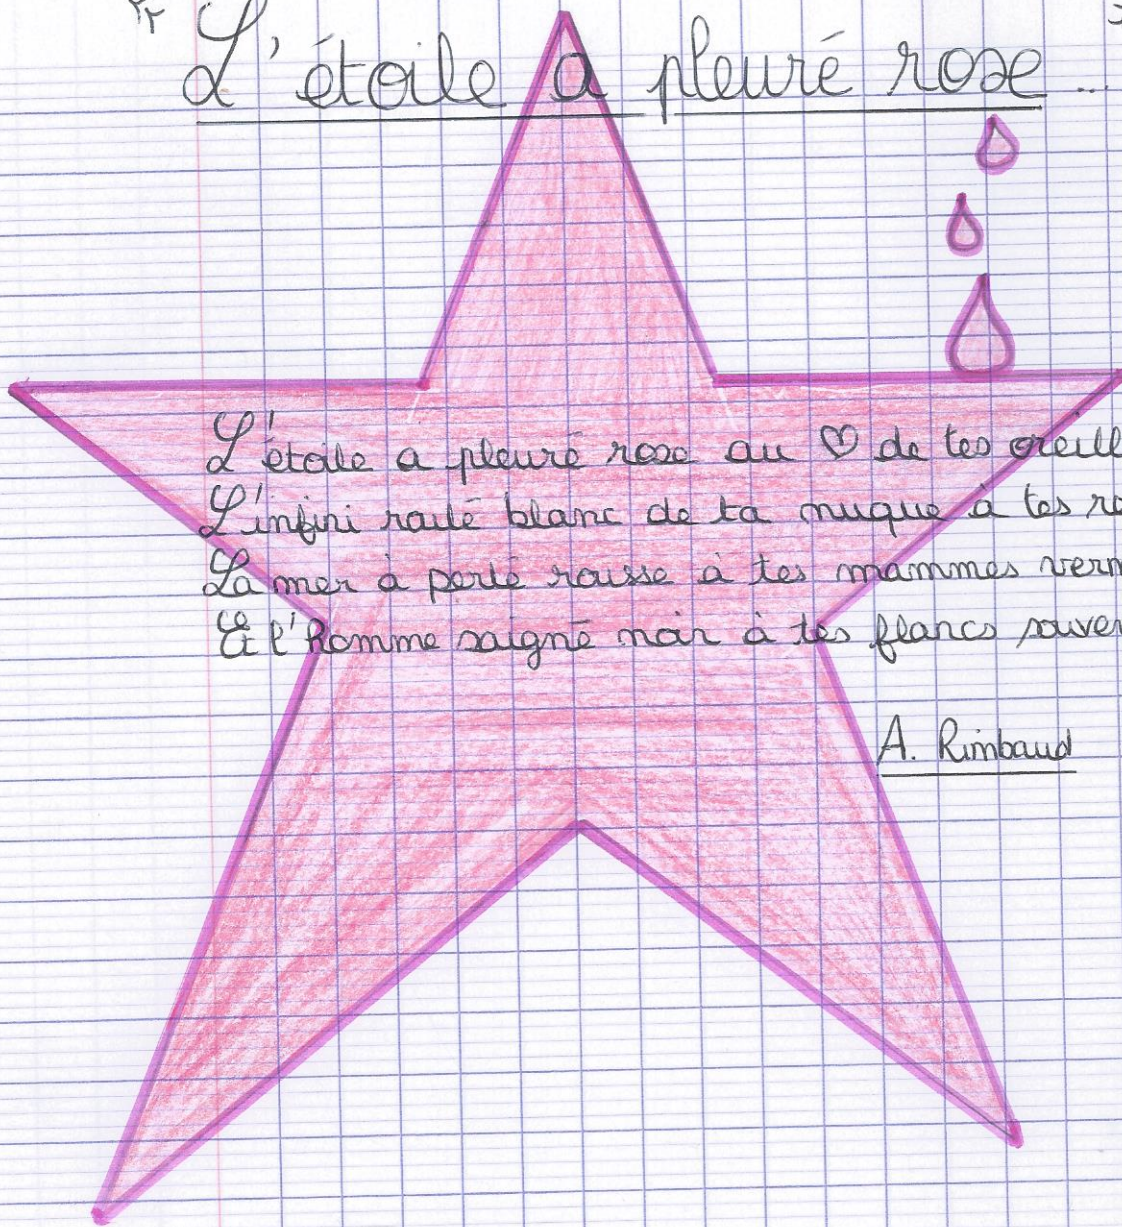 L'étoile a pleuré rose ..
L'étoile a pleuré rose au ♡ de tes oreill
L'infini roulé blanc de ta nuque à tes
La mer à perlé rousse à tes mammes verm
Et l'homme saigné noir à tes flancs souver
A. Rimbaud